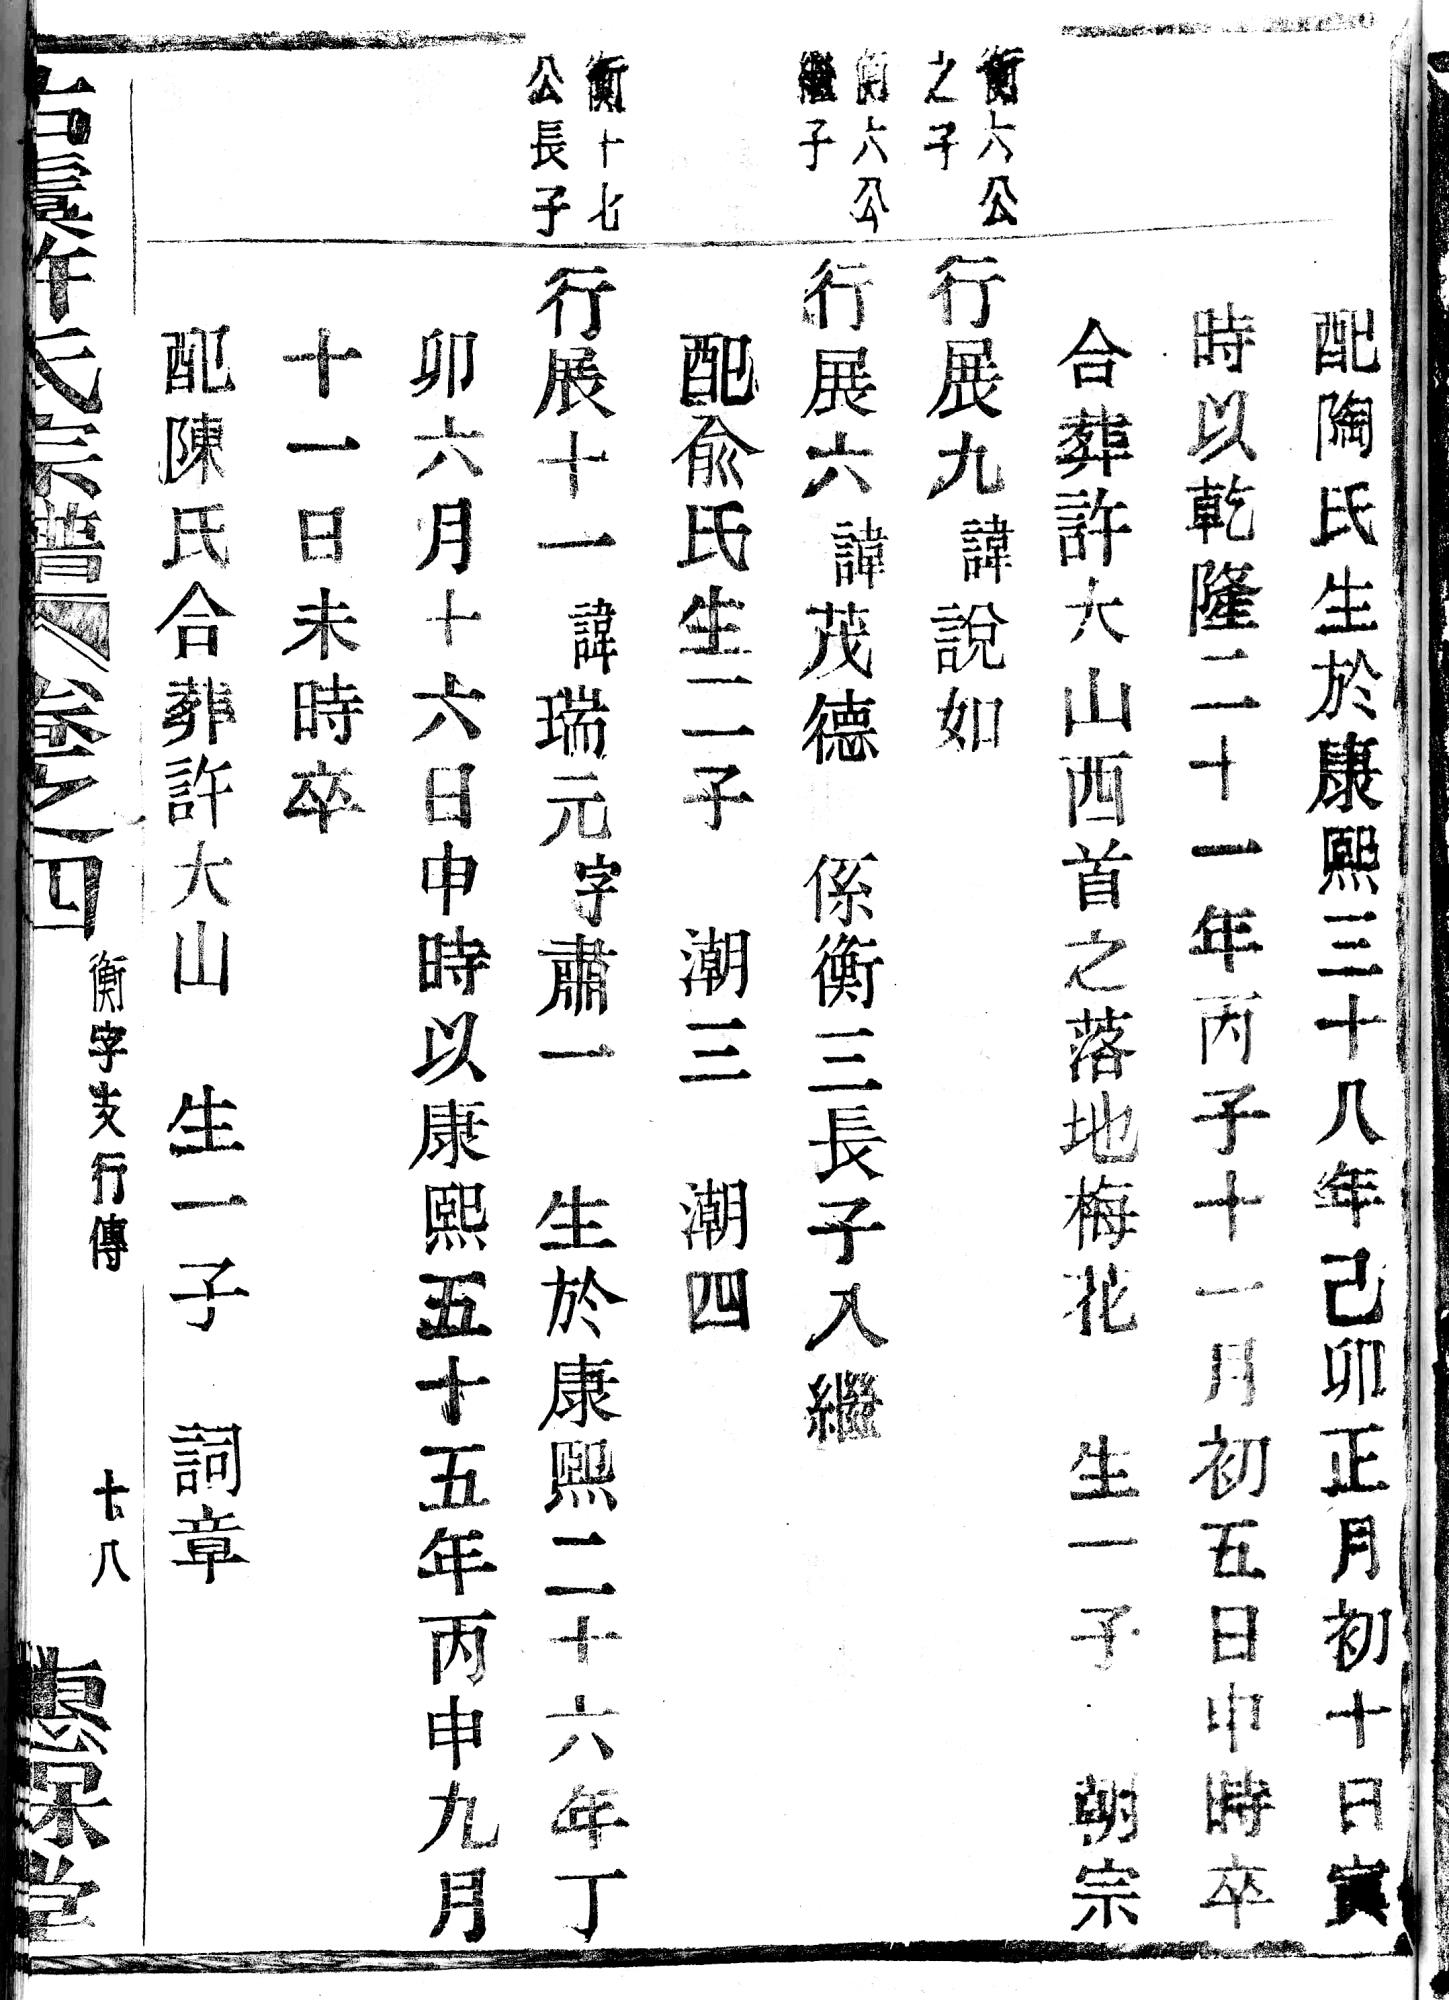 配陶氏生於康熙三十八年己卯正月初十日寅
時以乾隆二十一年丙子十一月初五日申時卒
合葬許大山西首之落地梅花　生一子　朝宗
衡六公
之子
行展九諱說如
衡六公
繼子
行展六諱茂德　係衡三長子入繼
配俞氏生二子　潮三　潮四
衡十七
公長子
行展十一諱瑞元字肅一　生於康熙二十六年丁
卯六月十六日申時以康熙五十五年丙申九月
十一日未時卒
配陳氏合葬許大山　生一子　詞章
古虞許氏宗譜　卷之四
衡字支行傳
十八
堂